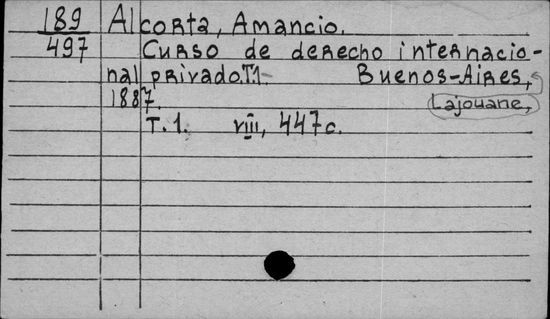 189 Alcorta, Amancio.
497 Curso de derecho internacio-
nal privado. T.1- Buenos-Aires,
1887. Lajouane,
T. 1. VIII, 447 c.